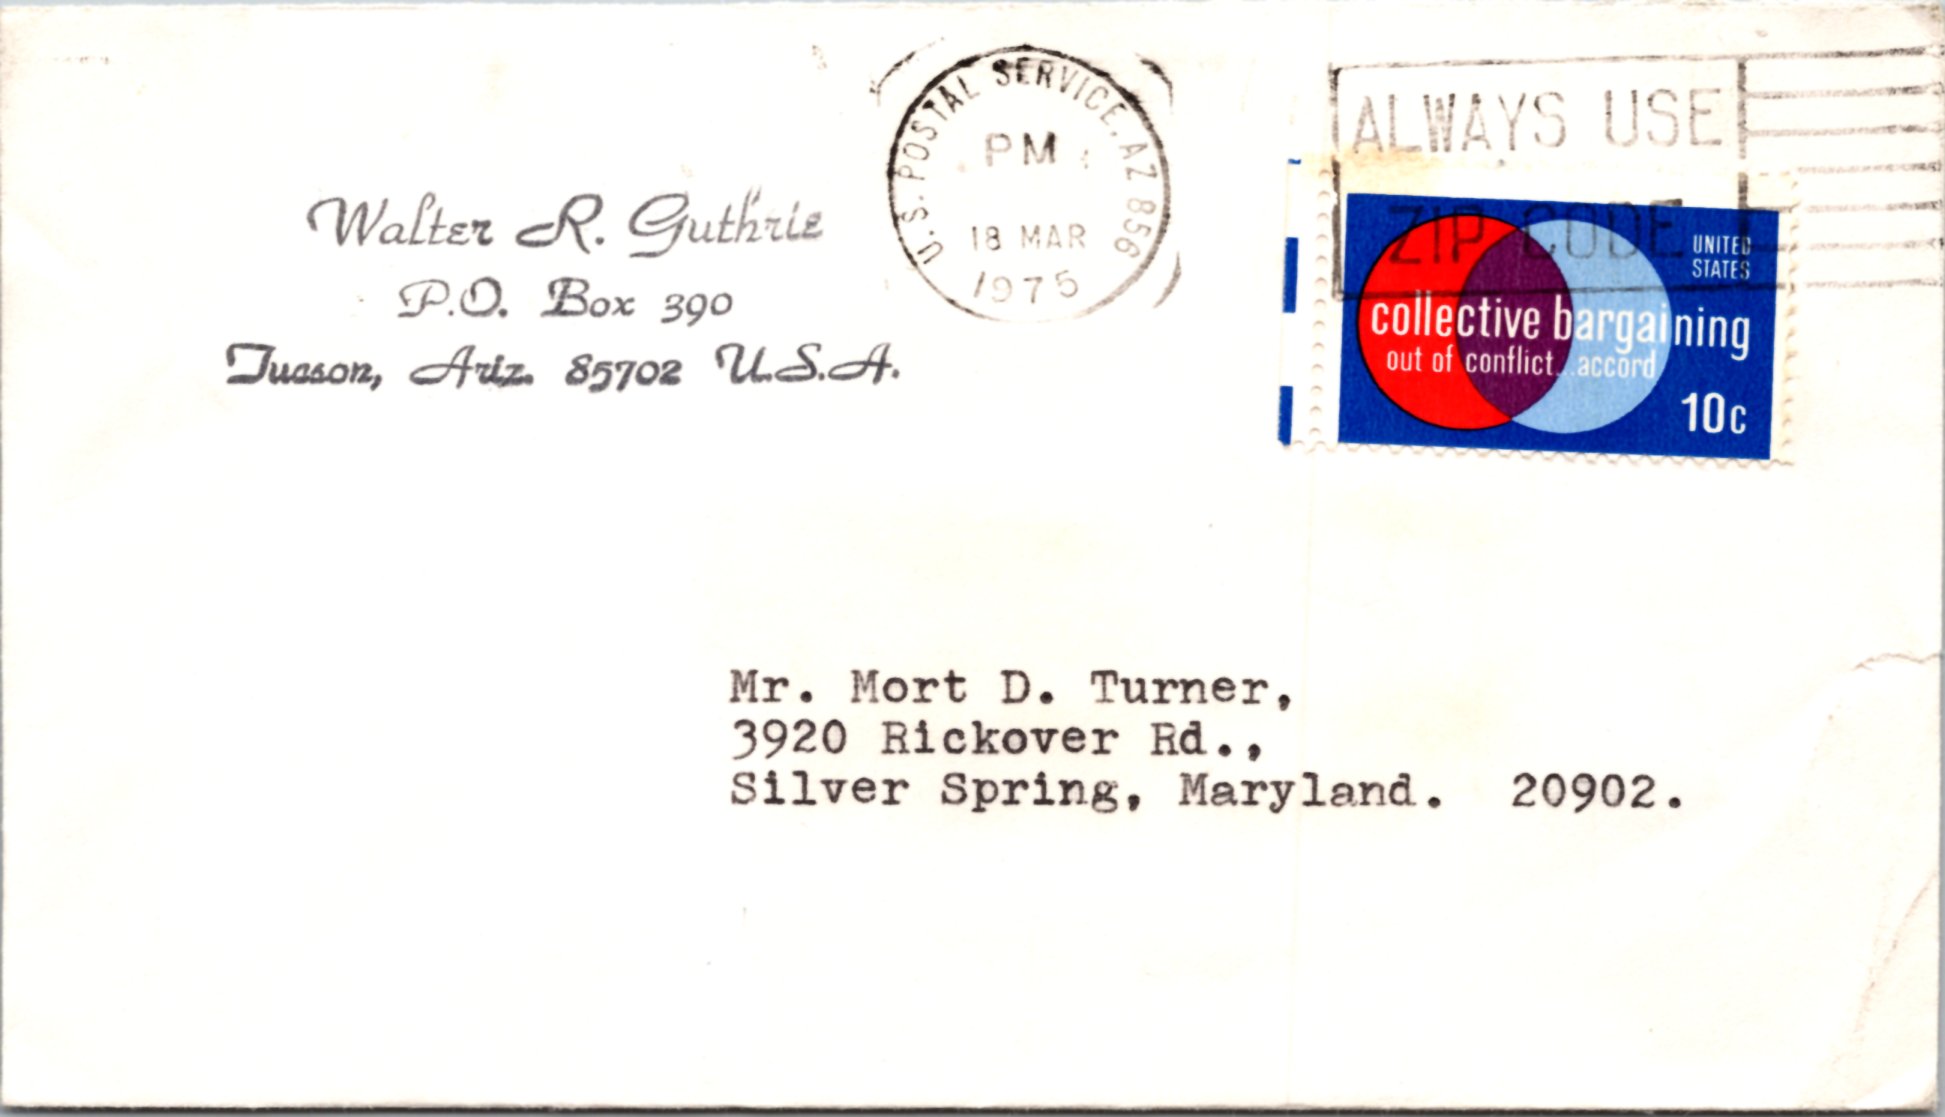 Walter R. Guthrie
P.O. Box 390
Tucson, Ariz. 85702 U.S.A.
U.S. POSTAL SERVICE, AZ 856
PM
18 MAR
1975
ALWAYS USE
ZIP CODE
UNITED
STATES
collective bargaining
out of conflict...accord
10c
Mr. Mort D. Turner,
3920 Rickover Rd.,
Silver Spring, Maryland. 20902.